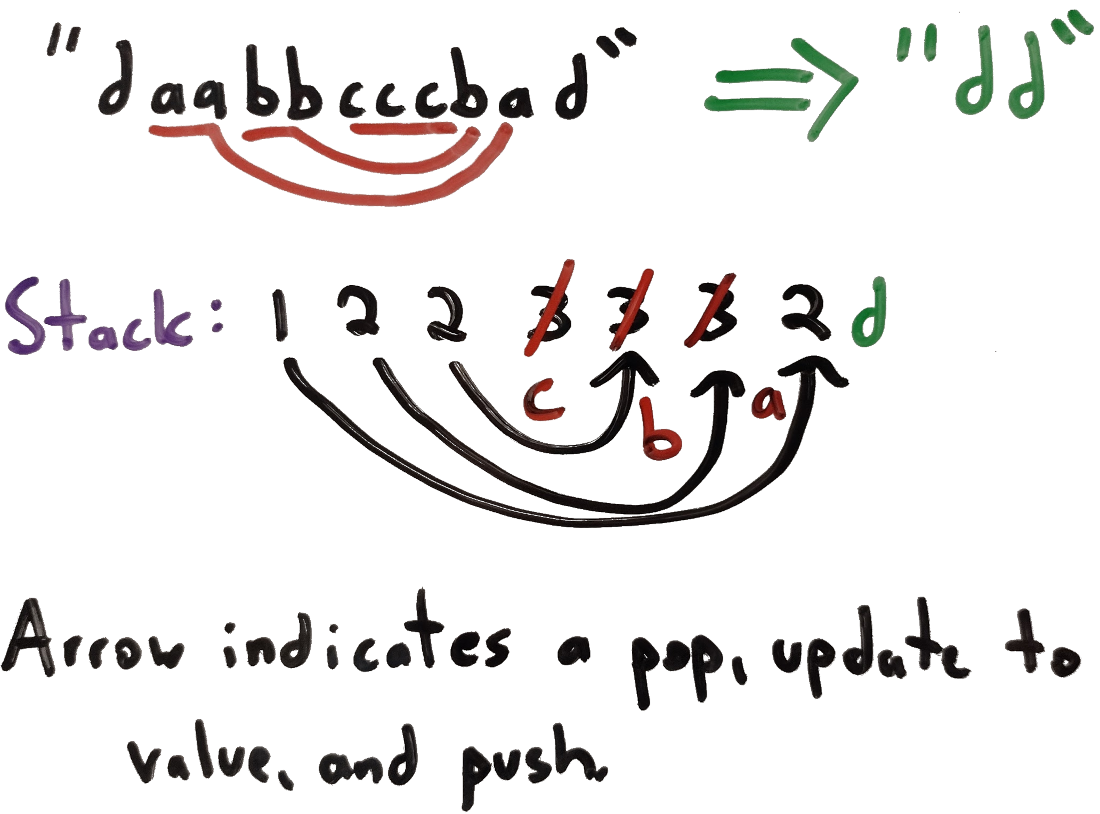 "daabbcccbad" ⇒ "dd"
Stack: 1 2 2 3 3 3 2 d
c b a
Arrow indicates a pop, update to
value, and push.